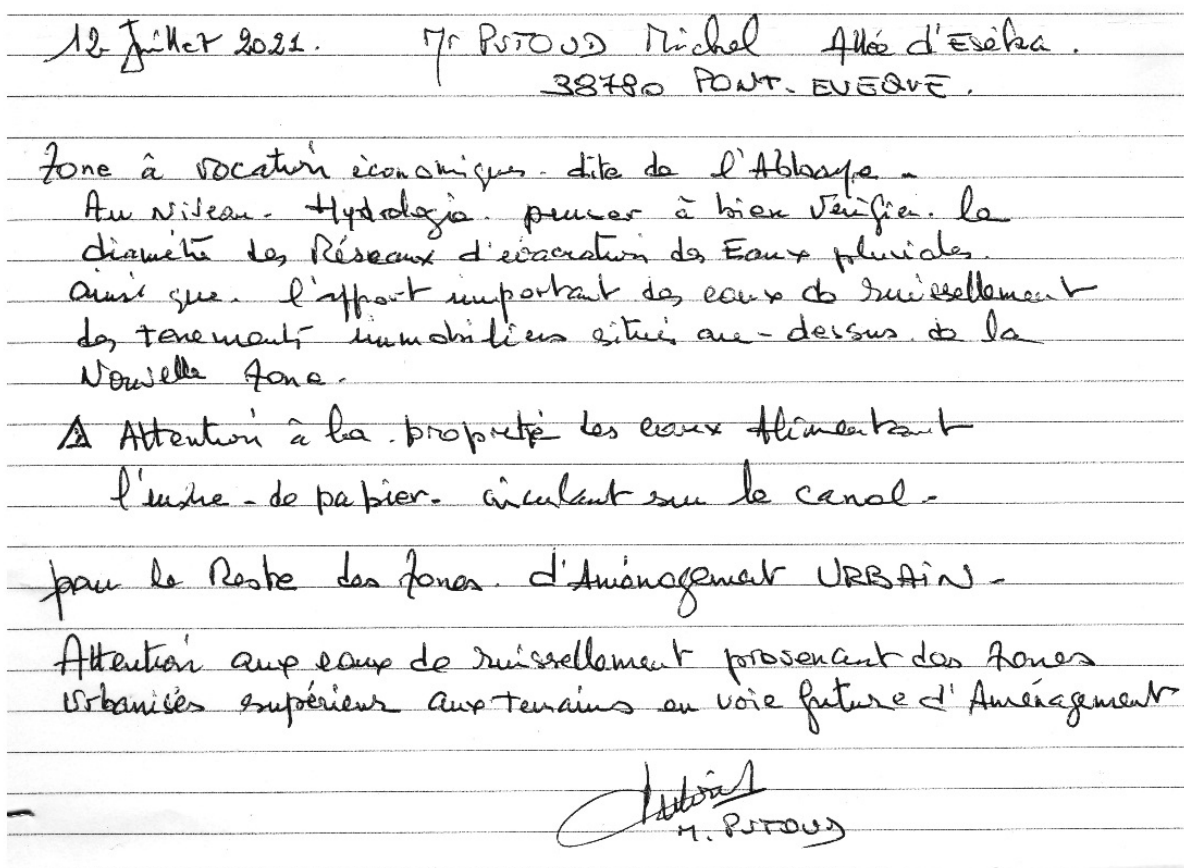 12 Juillet 2021. Mr PUTOUD Michel Allée d'Eséka.
38780 PONT-EVEQUE.
Zone à vocation économique dite de l'Abbaye -
Au Niveau - Hydrologie. penser à bien Vérifier. le
diamètre des Réseaux d'évacuation des Eaux pluviales.
ainsi que. l'apport important des eaux de ruissellement
des tenements immobiliers situés au-dessus de la
Nouvelle Zone.
⚠ Attention à la propreté des eaux Alimentant
l'usine - de papier. circulant sur le canal -
pour le Reste des Zones. d'Aménagement URBAiN -
Attention aux eaux de ruissellement provenant des Zones
Urbanisés supérieur aux terrains en voie future d'Aménagement
M. PUTOUD